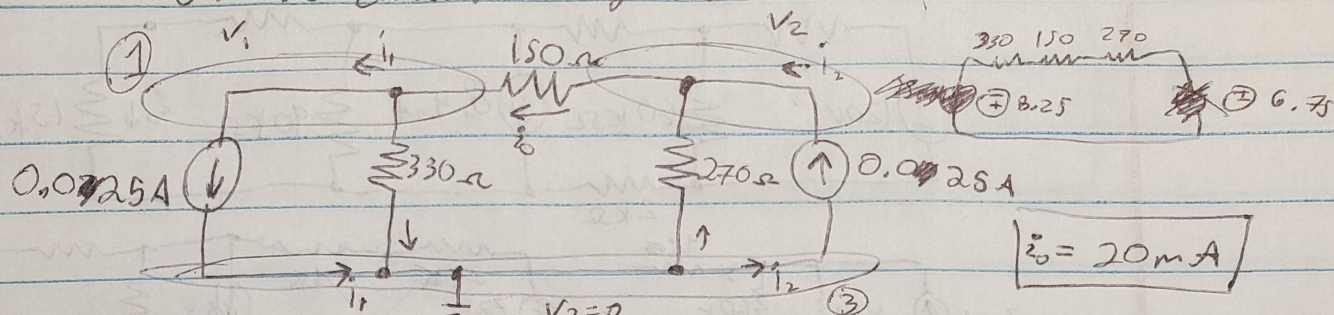 V₁ V₂
① i₁ 150Ω i₂ 330 150 270
i₀ 8.25 6.75
0.025A 330Ω 270Ω 0.025A
i₀ = 20mA
i₁ i₂ ③